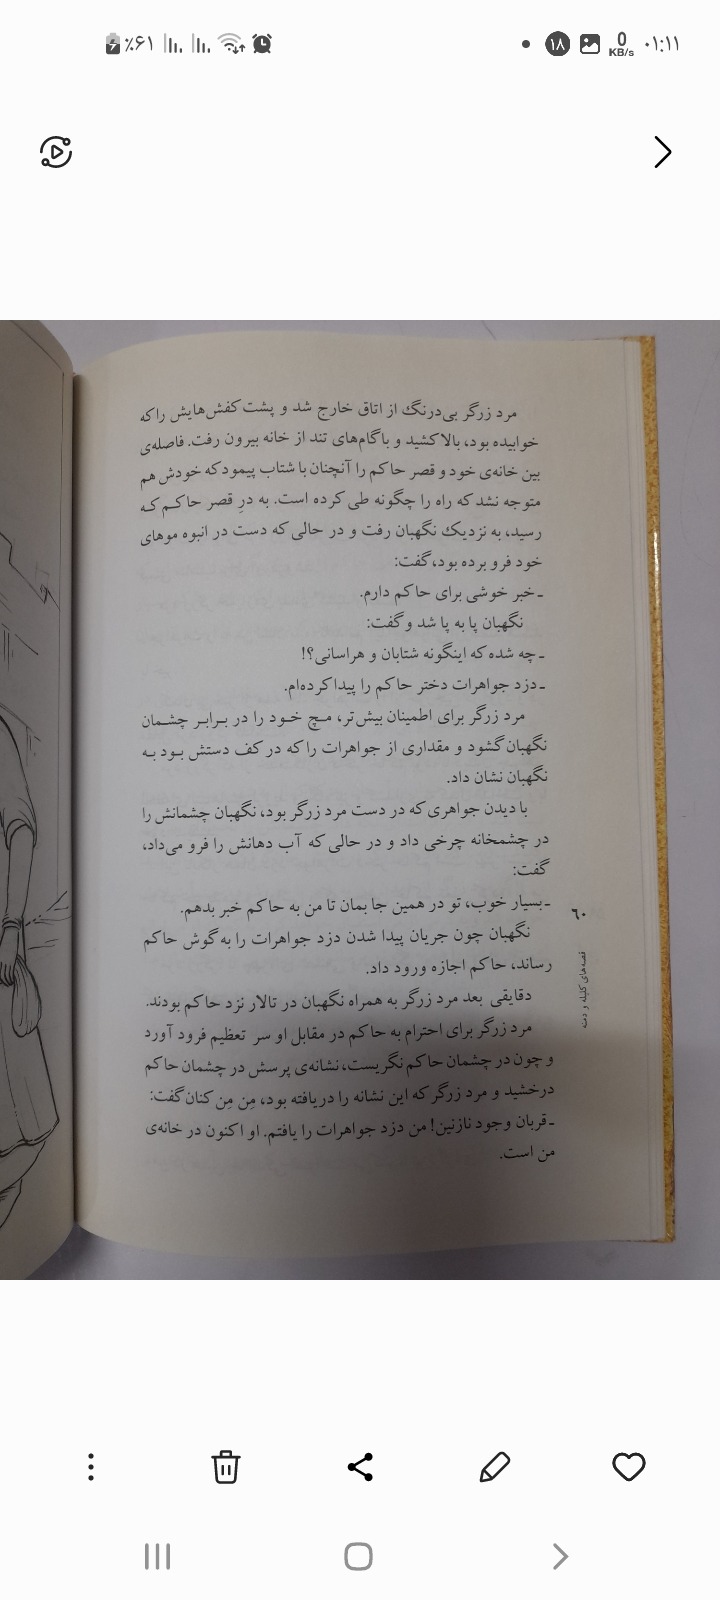 ٪۶۱
۱۸
0
KB/s
۰۱:۱۱
مرد زرگر بی‌درنگ از اتاق خارج شد و پشت کفش‌هایش را که
خوابیده بود، بالا کشید و با گام‌های تند از خانه بیرون رفت. فاصله‌ی
بین خانه‌ی خود و قصر حاکم را آنچنان با شتاب پیمود که خودش هم
متوجه نشد که راه را چگونه طی کرده است. به درِ قصر حاکم که
رسید، به نزدیک نگهبان رفت و در حالی که دست در انبوه موهای
خود فرو برده بود، گفت:
ـ خبر خوشی برای حاکم دارم.
نگهبان پا به پا شد و گفت:
ـ چه شده که اینگونه شتابان و هراسانی؟!
ـ دزد جواهرات دختر حاکم را پیدا کرده‌ام.
مرد زرگر برای اطمینان بیش‌تر، مچ خود را در برابر چشمان
نگهبان گشود و مقداری از جواهرات را که در کف دستش بود به
نگهبان نشان داد.
با دیدن جواهری که در دست مرد زرگر بود، نگهبان چشمانش را
در چشمخانه چرخی داد و در حالی که آب دهانش را فرو می‌داد،
گفت:
ـ بسیار خوب، تو در همین جا بمان تا من به حاکم خبر بدهم.
نگهبان چون جریان پیدا شدن دزد جواهرات را به گوش حاکم
رساند، حاکم اجازه ورود داد.
دقایقی بعد مرد زرگر به همراه نگهبان در تالار نزد حاکم بودند.
مرد زرگر برای احترام به حاکم در مقابل او سر تعظیم فرود آورد
و چون در چشمان حاکم نگریست، نشانه‌ی پرسش در چشمان حاکم
درخشید و مرد زرگر که این نشانه را دریافته بود، مِن مِن کنان گفت:
ـ قربان وجود نازنین! من دزد جواهرات را یافتم. او اکنون در خانه‌ی
من است.
۶۰
قصه‌های کلیله و دمنه